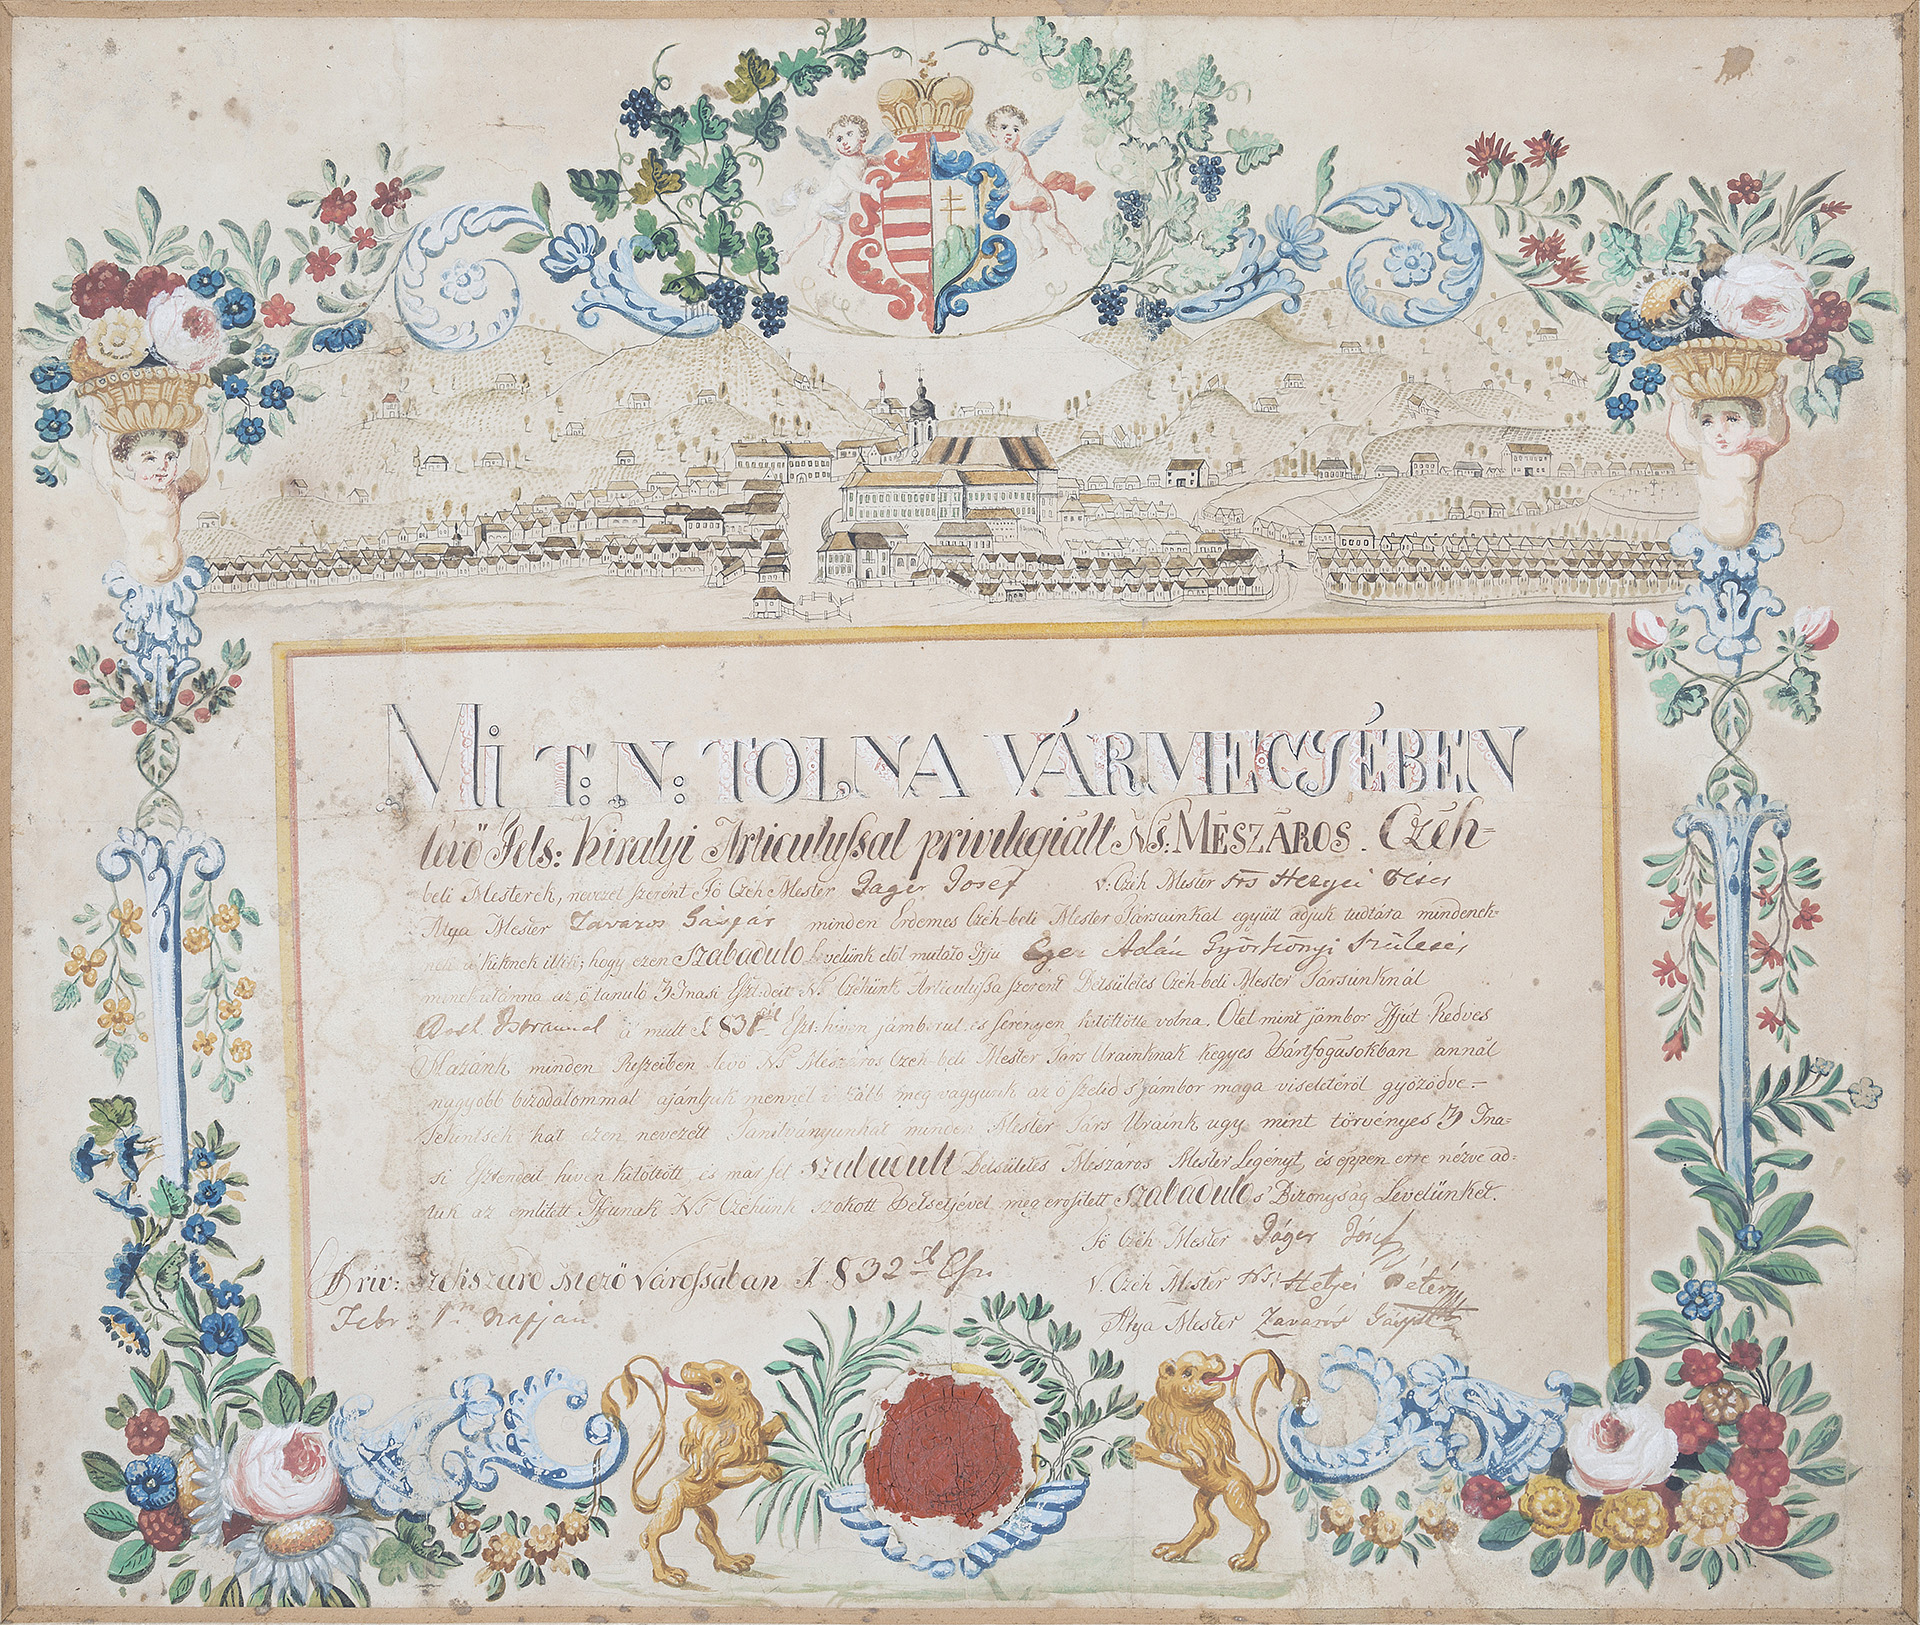 Mi T: N: TOLNA VÁRMEGYÉBEN
lévő Fels: Királyi Articulussal privilegiált Ns: MÉSZÁROS Czéh=
beli Mesterek, nevezet szerent Fő Czéh Mester Jager Josef V: Czéh Mester Ns Hetyei Péter
Atya Mester Zavaros Gáspár minden Érdemes Czéh-beli Mester Társainkal együtt adjuk tudtára mindenek-
nek a'kiknek illik; hogy ezen Szabaduló Levelünk elöl mutató Ifjú Eger Adán Györkönyi Születésű
minekutánna az ő tanuló 3 Inasi Eszt:deit Ns Czéhünk Articulussa szerént Betsületes Czéh-beli Mester Társunknál
Istvánnal a' mult 1831dik Eszt: hiven jámborul és serényen kitöltötte volna. Ötet mint jámbor Ifjút Kedves
Hazánk minden Részeiben levő Ns Mészáros Czéh beli Mester Társ Urainknak kegyes Pártfogásokban annál
nagyobb bizodalommal ajánljuk mennél inkább meg vagyunk az ő szelid s jámbor maga viseletéről győződve.-
Tekintsék hát ezen nevezett Tanítványunkat minden Mester Társ Uraink ugy mint törvényes 3 Ina-
si Esztendeit hiven kitöltött és már fel szabadult Betsületes Mészáros Mester Legényt, és éppen erre nézve ad=
tuk az emlitett Ifjunak Ns Czéhünk szokott Petsétjével meg erősített szabaduló s' Bizonyság Levelünket.
Fő Czéh Mester Jáger Jósef
Priv: Szekszárd Mező Várossában 1832dik Esz.
V. Czéh Mester Ns: Hetyei Péter
Febr. 1ső Napján.
Atya Mester Zavarós Gáspár